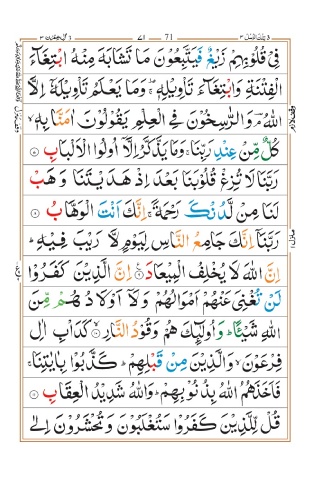 71
فِىْ قُلُوْبِهِمْ زَيْغٌ فَيَتَّبِعُوْنَ مَا تَشَابَهَ مِنْهُ ابْتِغَآءَ
الْفِتْنَةِ وَابْتِغَآءَ تَاْوِيْلِهٖ ۚؔ وَمَا يَعْلَمُ تَاْوِيْلَهٗۤ اِلَّا
اللّٰهُ ۘؔ وَالرّٰسِخُوْنَ فِى الْعِلْمِ يَقُوْلُوْنَ اٰمَنَّا بِهٖ ۙ
كُلٌّ مِّنْ عِنْدِ رَبِّنَا ۚ وَمَا يَذَّكَّرُ اِلَّاۤ اُولُوا الْاَلْبَابِ ۝۷
رَبَّنَا لَا تُزِغْ قُلُوْبَنَا بَعْدَ اِذْ هَدَيْتَنَا وَهَبْ
لَنَا مِنْ لَّدُنْكَ رَحْمَةً ۚ اِنَّكَ اَنْتَ الْوَهَّابُ ۝۸
رَبَّنَاۤ اِنَّكَ جَامِعُ النَّاسِ لِيَوْمٍ لَّا رَيْبَ فِيْهِ ؕ
اِنَّ اللّٰهَ لَا يُخْلِفُ الْمِيْعَادَ ۝۹ اِنَّ الَّذِيْنَ كَفَرُوْا
لَنْ تُغْنِىَ عَنْهُمْ اَمْوَالُهُمْ وَلَاۤ اَوْلَادُهُمْ مِّنَ
اللّٰهِ شَيْئًا ؕ وَاُولٰٓئِكَ هُمْ وَقُوْدُ النَّارِ ۝۱۰ كَدَاْبِ اٰلِ
فِرْعَوْنَ ۙ وَالَّذِيْنَ مِنْ قَبْلِهِمْ ؕ كَذَّبُوْا بِاٰيٰتِنَا ۚ
فَاَخَذَهُمُ اللّٰهُ بِذُنُوْبِهِمْ ؕ وَاللّٰهُ شَدِيْدُ الْعِقَابِ ۝۱۱
قُلْ لِّلَّذِيْنَ كَفَرُوْا سَتُغْلَبُوْنَ وَتُحْشَرُوْنَ اِلٰى